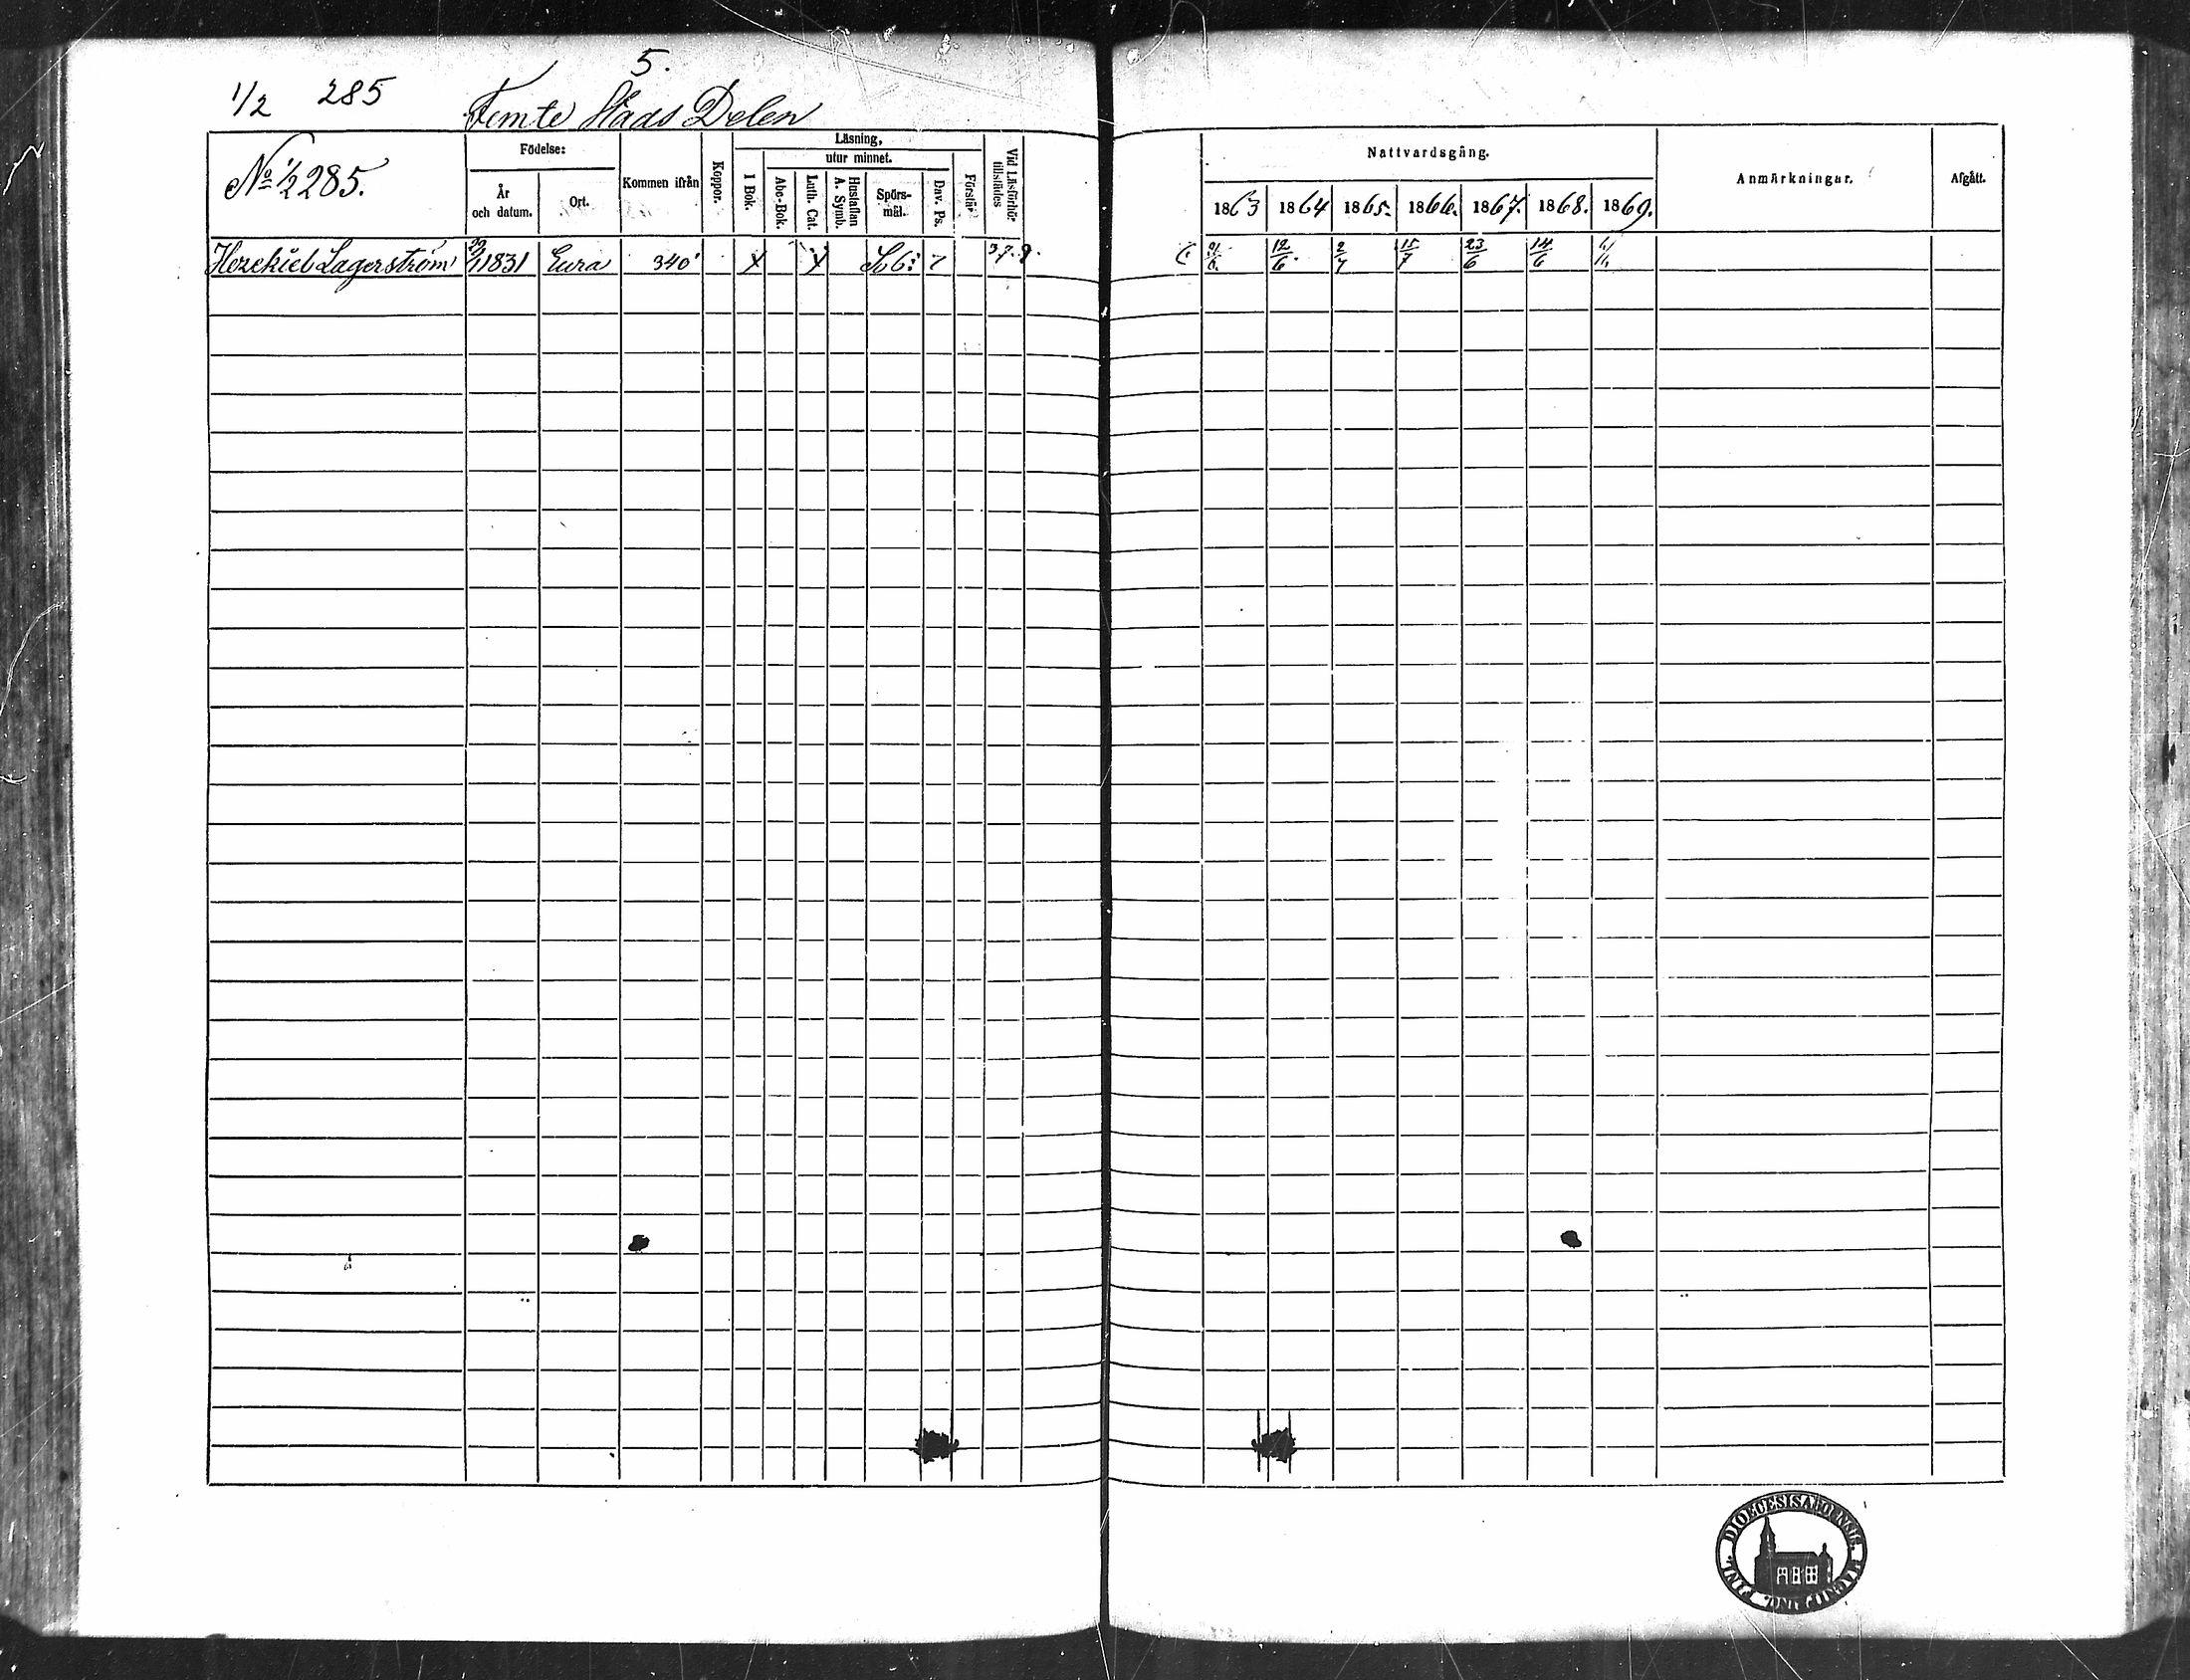 5.
1/2 285 Femte Stads Delen
No 1/2 285.
Födelse:
År och datum.
Ort.
Kommen ifrån
Koppor.
Läsning,
I Bok.
utur minnet.
Abc-Bok.
Luth. Cat.
Hustaflan A. Symb.
Spörs-mål.
Dav. Ps.
Förstår
Vid Läsförhör tillstädes
Nattvardsgång.
1863 1864 1865. 1866. 1867. 1868. 1869.
Anmärkningar.
Afgått.
Hezekiel Lagerström 1831 Eura 340 x x 12/6 2/7 15/7 23/6 14/6
DIOECESIS ABOENSIS